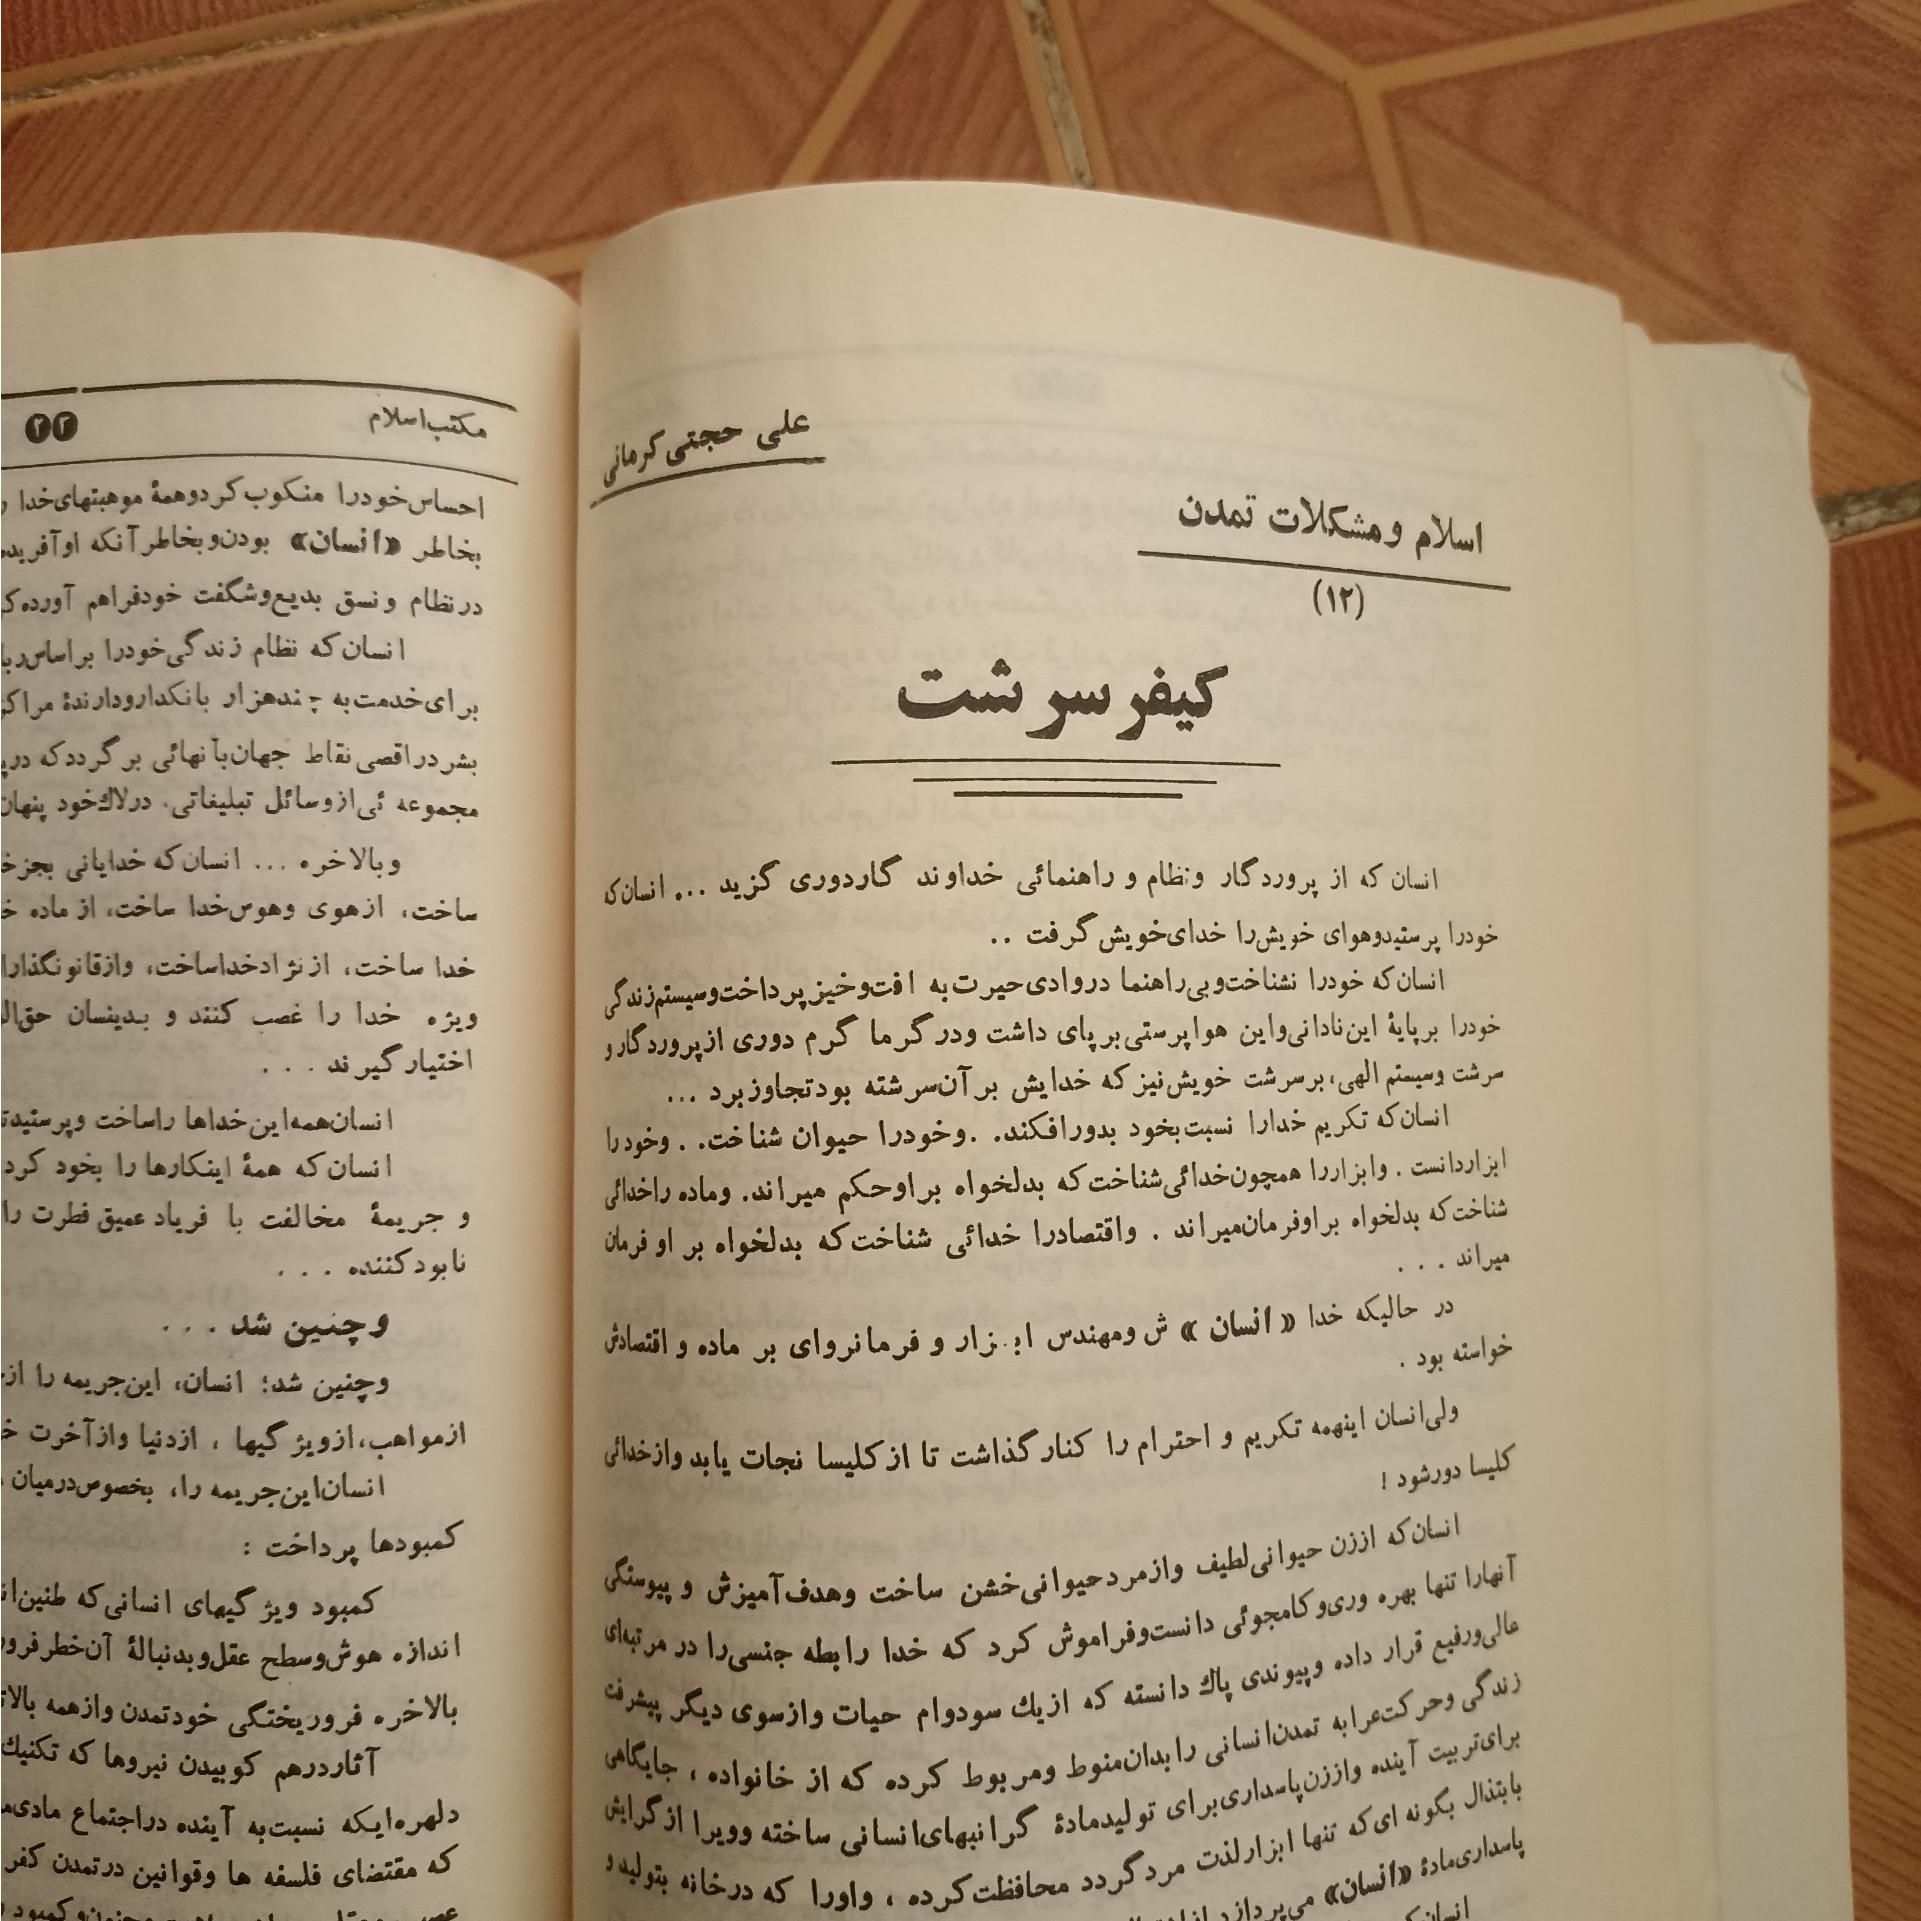 علی حجتی کرمانی
اسلام و مشکلات تمدن
(۱۲)
کیفر سرشت
انسان که از پروردگار ونظام و راهنمائی خداوند گاردوری گزید ... انسان که
خودرا پرستیدوهوای خویش را خدای خویش گرفت ..
انسان که خودرا نشناخت وبی راهنما دروادی حیرت به افت وخیز پرداخت وسیستم زندگی
خودرا برپایهٔ این نادانی واین هواپرستی برپای داشت ودرگرما گرم دوری از پروردگارو
سرشت وسیستم الهی، برسرشت خویش نیز که خدایش برآن سرشته بودتجاوزبرد ...
انسان که تکریم خدارا نسبت بخود بدورافکند. .وخودرا حیوان شناخت. . وخودرا
ابزاردانست . وابزاررا همچون خدائی شناخت که بدلخواه براوحکم میراند. وماده راخدائی
شناخت که بدلخواه براوفرمان میراند . واقتصادرا خدائی شناخت که بدلخواه بر او فرمان
میراند . . .
در حالیکه خدا «انسان» ش ومهندس ابزار و فرمانروای بر ماده و اقتصادش
خواسته بود .
ولی انسان اینهمه تکریم و احترام را کنارگذاشت تا از کلیسا نجات یابد وازخدائی
کلیسا دورشود !
انسان که اززن حیوانی لطیف وازمردحیوانی خشن ساخت وهدف آمیزش و پیوستگی
آنهارا تنها بهره وری وکامجوئی دانست وفراموش کرد که خدا رابطه جنسی را در مرتبه‌ای
عالی ورفیع قرار داده وپیوندی پاك دانسته که ازیك سودوام حیات وازسوی دیگر پیشرفت
زندگی وحرکت عرابه تمدن انسانی رابدان منوط ومربوط کرده که از خانواده ، جایگاهی
برای تربیت آینده واززن پاسداری برای تولیدمادهٔ گرانبهای انسانی ساخته وویرا ازگرایش
بابتذال بگونه ای که تنها ابزارلذت مردگردد محافظت کرده ، واورا که درخانه بتولید و
پاسداری مادهٔ «انسان» می پردازد
انسان
مکتب اسلام
۲۳
احساس خودرا منکوب کردوهمهٔ موهبتهای خدا
بخاطر «انسان» بودن وبخاطر آنکه او
درنظام ونسق بدیع وشگفت خودفراهم آورده
انسان که نظام زندگی خودرا براساس
برای خدمت به چندهزار بانکدارودارندهٔ
بشردراقصی نقاط جهان بآنهائی برگرددکه
مجموعه ئی ازوسائل تبلیغاتی، درلاك خود پنهان
وبالاخره ... انسان که خدایانی بجز
ساخت، ازهوی وهوس خدا ساخت، از ماده
خدا ساخت، از نژادخداساخت، وازقانونگذارا
ویژه خدا را غصب کنند و بدینسان
اختیارگیرند . . .
انسان همه این خداها راساخت
انسان که همهٔ اینکارها را بخود کرد
و جریمهٔ مخالفت با فریاد عمیق فطرت را
نابودکننده . . .
وچنین شد . . .
وچنین شد؛ انسان، این جریمه را
ازمواهب، ازویژگیها ، ازدنیا وازآخرت
انسان این جریمه را، بخصوص درمیان
کمبودها پرداخت :
کمبود ویژگیهای انسانی که طنین
اندازه هوش وسطح عقل وبدنبالهٔ آن خطر
بالاخره فروریختگی خودتمدن وازهمه
آثاردرهم کوبیدن نیروها که تکنیك
دلهره ایکه نسبت به آینده دراجتماع
که مقتضای فلسفه ها وقوانین درتمدن